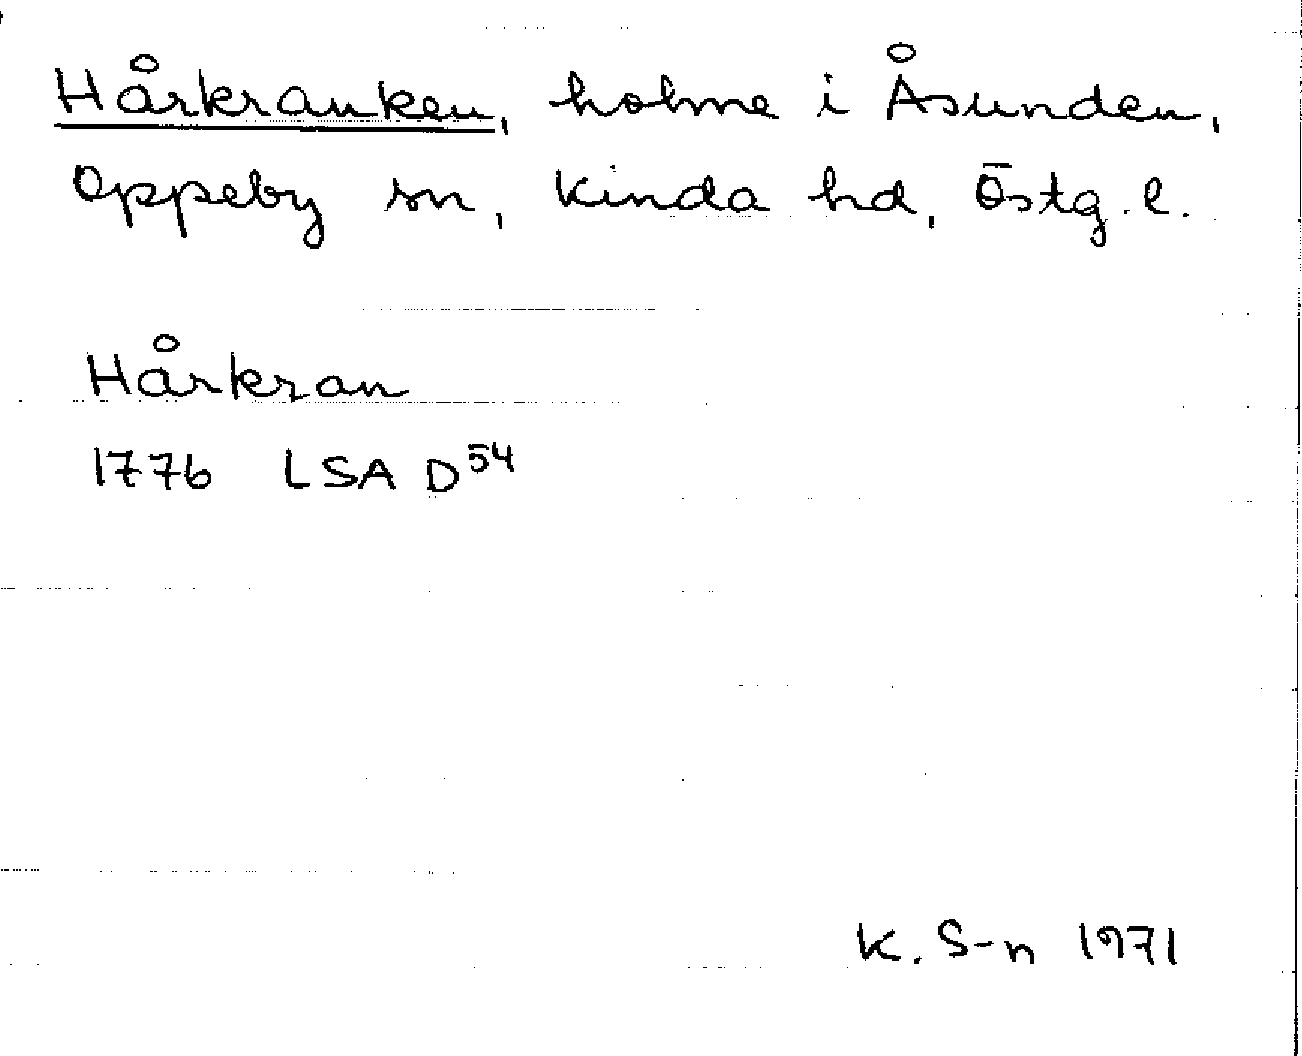 Hårkranken, holme i Åsunden,
Oppeby sn, Kinda hd, Östg. l.
Hårkran
1776 LSA D⁵⁴
K. S-n 1971